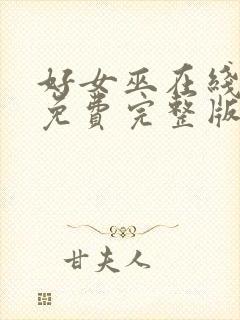 好女巫在线
免费完整版
甘夫人